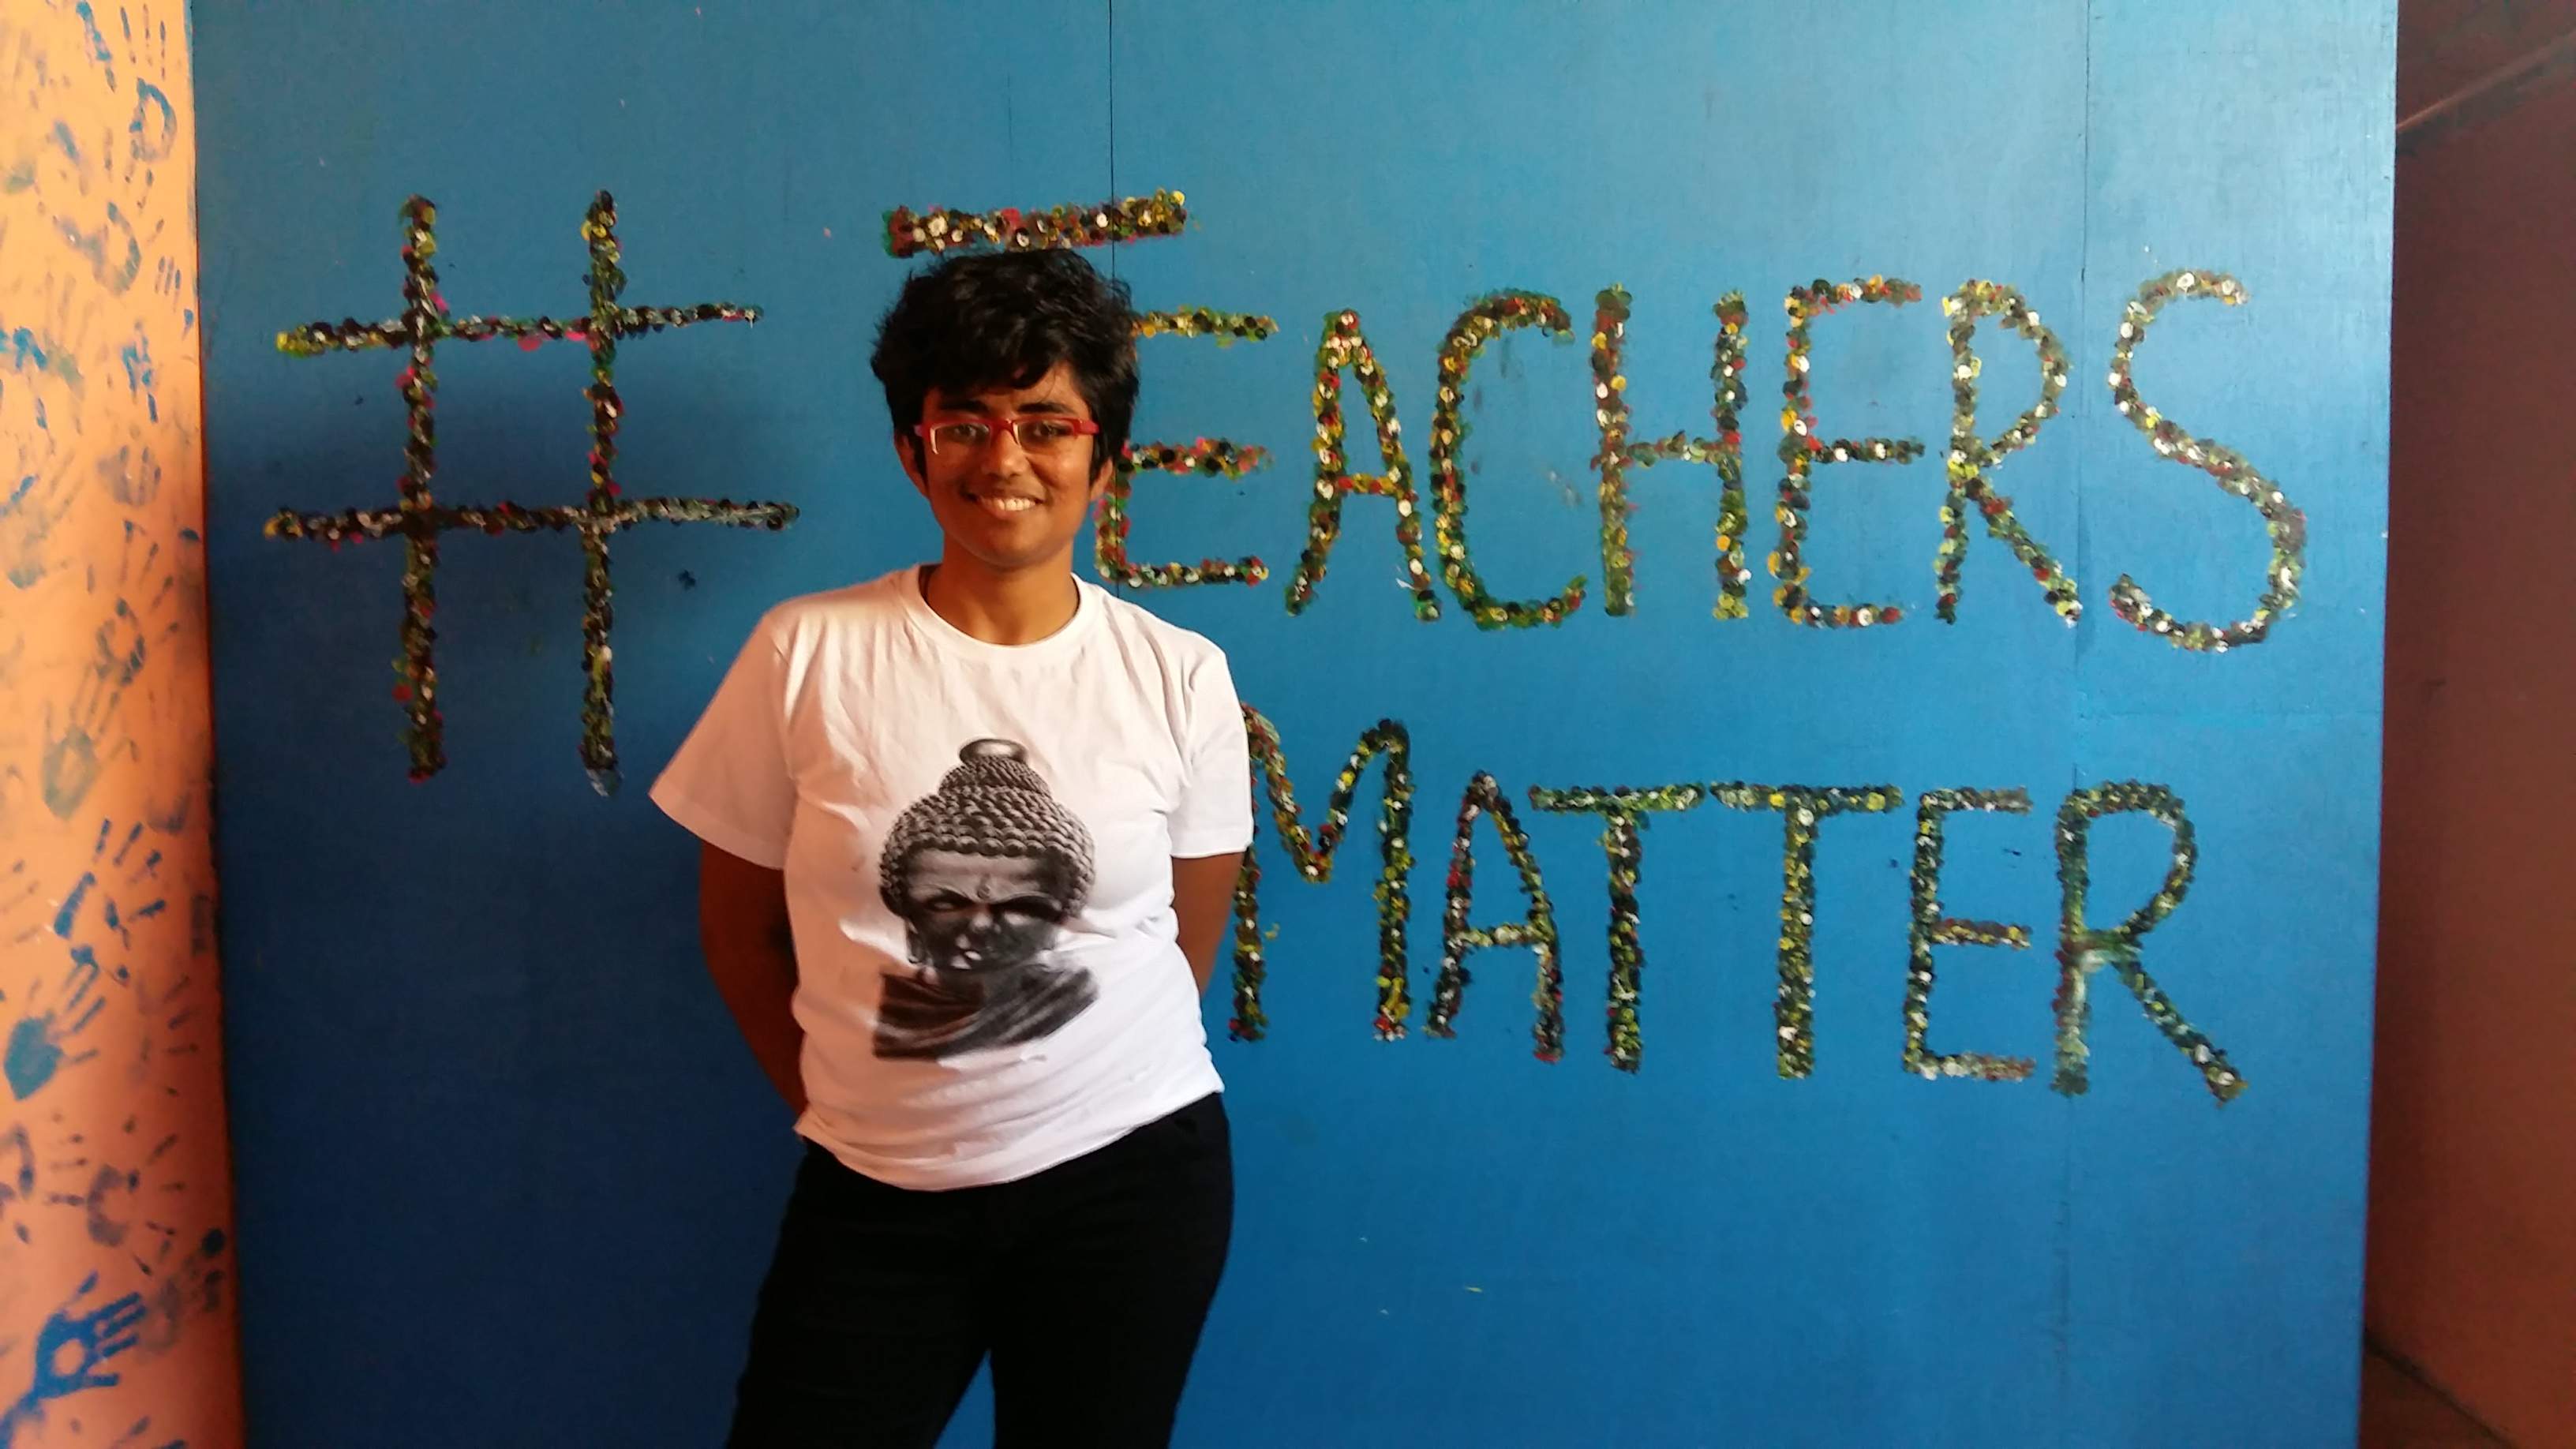 #TEACHERS
MATTER